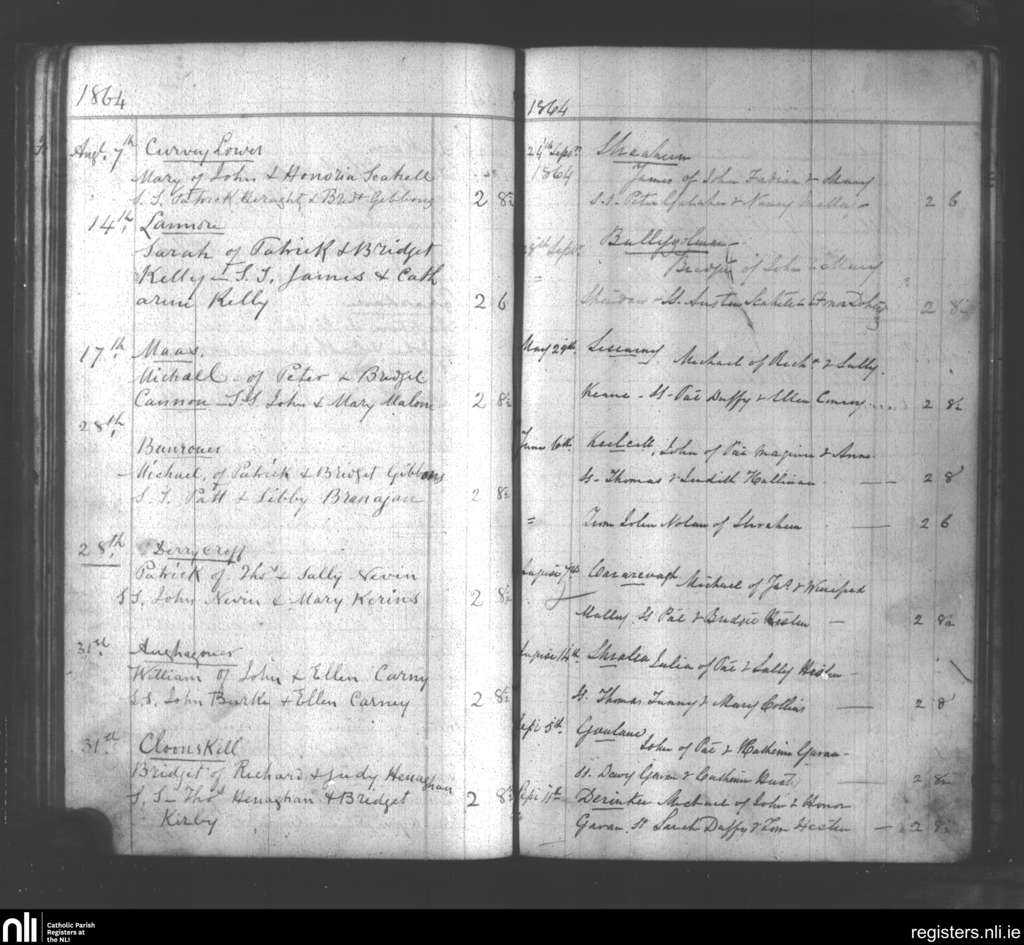 1864
Augt. 7th Curvey Lower
Mary of John & Honoria Scahell
S. S. Patrick Heraght & Bridt Gibbons 2 8½
14th, Lannon
Sarah of Patrick & Bridget
Kelly — S. S. James & Cath
arine Kelly 2 6
17th, Maas.
Michael of Peter & Bridget
Cannon — S S John & Mary Malone 2 8½
28th,
Bunrower
Michael, of Patrick & Bridget Gibbons
S. S. Patt & Libby Branagan 2 8½
28th, Derrycroff
Patrick of Thos & Sally Nevin
S S. John Nevin & Mary Kerins 2 8½
31st Aughagower
William of John & Ellen Carny
S.S. John Burke & Ellen Carney 2 8½
31st Cloonskill
Bridget of Richard & Judy Henaghan
S. S — Thos Henaghan & Bridget 2 8½
Kirby
1864
24th Sepr. Shraheen
1864 James of John Fabian & Mary
S.S. Peter & Nancy Malley 2 6
Sepr. Ballygolman
Bridget of John & Mary
Sheridan — SS. Austin Scahill & Honor Doherty 2 8½
May 29th. Michael of Richd & Sally
Keane — SS. Pat Duffy & Ellen Conroy .... 2 8½
June 6th. John of Pat Maguire & Anne
SS. Thomas & Judith Hallinan — 2 8
" From John Nolan of Shraheen — 2 6
August 7th Michael of Jas & Winefred
Malley. SS Pat & Bridget Hester — 2 8½
August 14th Julia of Pat & Sally Hester —
SS. Thomas Tunny & Mary Collins — 2 8
Sept 5th. Goulaun John of Pat & Catherine Gavan —
SS. Davy Gavan & Catherine 2 8½
Sept 11th Michael of John & Honor
Gavan. SS Sarah Duffy & Tom Hester — 2 8½
nli Catholic Parish
Registers at
the NLI
registers.nli.ie